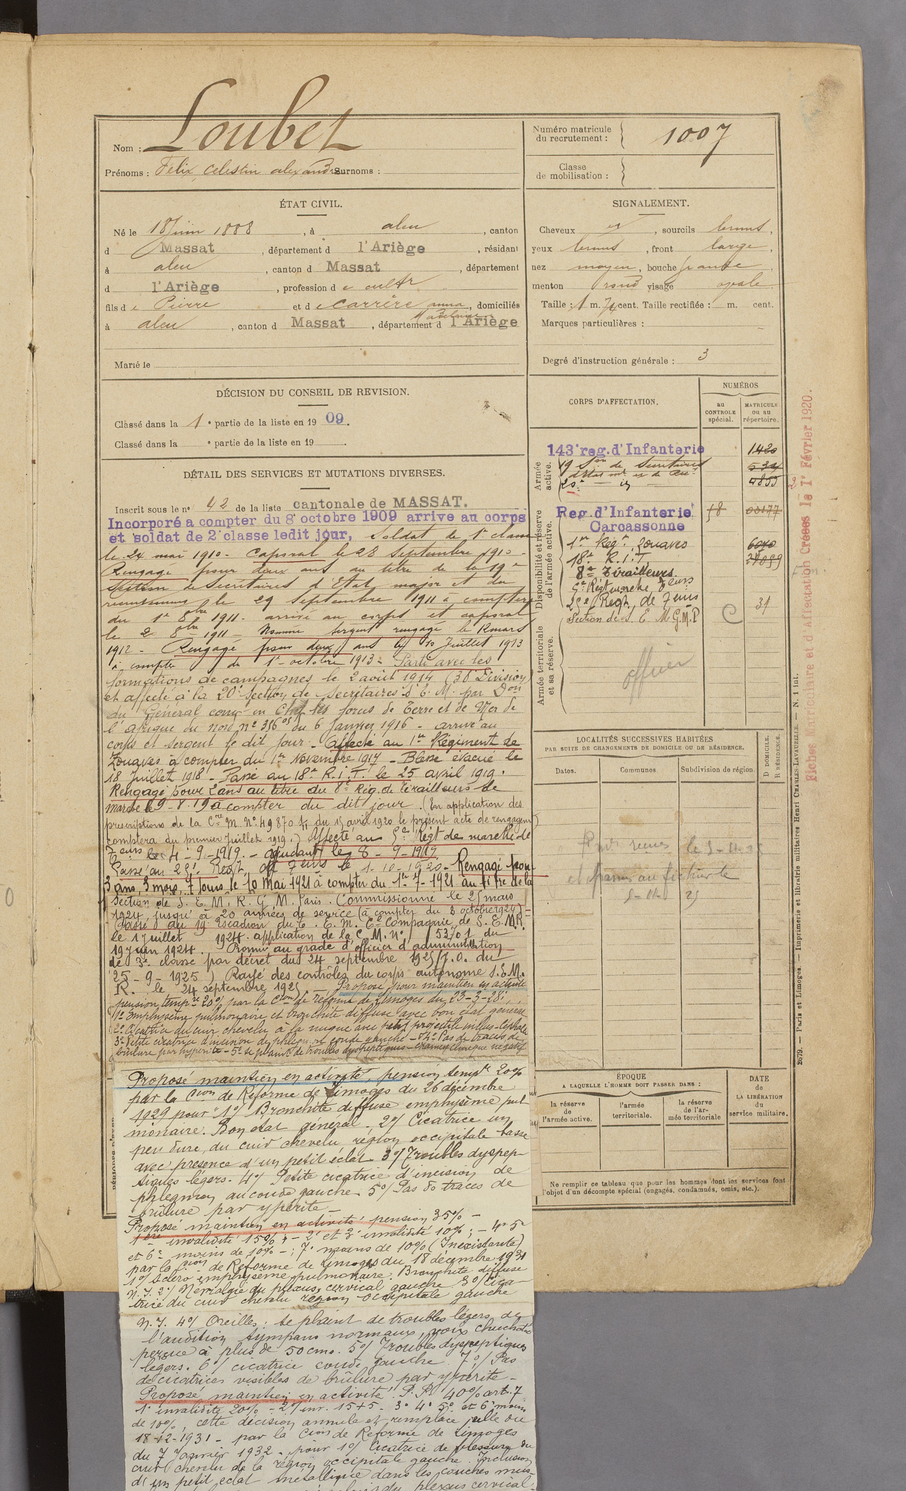 Nom : Loubet
Prénoms : Felix Celestin Alexandre Surnoms :
Numéro matricule du recrutement : 1007
Classe de mobilisation :
ÉTAT CIVIL.
Né le 18 Juin 1888, à aleu, canton
d Massat, département d l'Ariège, résidant
à aleu, canton d Massat, département
d l'Ariège, profession de cultr
fils de Pierre et de Carrère anna, domiciliés
à aleu, canton d Massat, département d l'Ariège
Marié le
SIGNALEMENT.
Cheveux , sourcils bruns,
yeux bruns, front large,
nez moyen, bouche grande
menton rond visage ovale
Taille : 1 m. cent. Taille rectifiée : m. cent.
Marques particulières :
Degré d'instruction générale : 3
DÉCISION DU CONSEIL DE REVISION.
Classé dans la 1e partie de la liste en 1909.
Classé dans la e partie de la liste en 19
DÉTAIL DES SERVICES ET MUTATIONS DIVERSES.
Inscrit sous le n° 42 de la liste cantonale de MASSAT.
Incorporé a compter du 8 octobre 1909 arrive au corps
et soldat de 2e classe ledit jour, Soldat de 1e classe
le 24 mai 1910 - Caporal le 28 Septembre 1910 -
Rengagé pour deux ans au titre de la 19e
Section de Secrétaires d'Etat major et du
recrutement, le 29 Septembre 1911 à compter
du 1er 8bre 1911. arrivé au corps et caporal
le 2 8bre 1911 - Nommé sergent rengagé le
1912 - Rengagé pour deux ans le 10 Juillet 1913
à compter du 1er octobre 1913 - Parti avec les
formations de campagnes le 2 août 1914 (38 Division)
et affecté à la 20e Section de Secrétaires d'E. M. par Don
du Général comt en Chef les forces de Terre et de Mer de
l'afrique du Nord n° 356 du 6 Janvier 1916 - arrivé au
corps et Sergent le dit jour - affecté au 1er Régiment de
Zouaves à compter du 1er Novembre 1917 - Blessé évacué le
18 juillet 1918 - Passé au 18e R.I.T. le 25 avril 1919.
Rengagé pour 2 ans au titre du 8e Rég. de tirailleurs de
marche le 9-8-19 à compter du dit jour. (En application des
prescriptions de la Cre M. N° 49870 du 15 avril 1920 le présent acte de rengagemt
comptera du premier Juillet 1919.) Affecté au Régt de marche de
Teurs le 4-9-1919. - adjudant le 8-9-1919
Passé au 28e Régt de Teurs le 1-10-1920 - Rengagé pour
3 ans, 3 mois, 7 jours le 10 Mai 1921 à compter du 1-7-1921 au titre de la
Section de S. E. M. R. G. M. Paris. Commissionné le 21 mars
1924, jusqu'à 20 années de service (à compter du 8 octobre 1924) -
Passé à du 19 Escadron du t. E. M. Cie Compagnie de S.E.M.R.
le 1 juillet 1924. application de la C. M. N° 1553/01 du
19 juin 1924. Promu au grade d'officier d'administration
de 3e classe par décret du 24 septembre 1925 (J.O. du
25-9-1925) Rayé des contrôles du corps autonome S.E.M.
R. le 24 septembre 1925. - Proposé pour maintien en activité
pension tempre 20% par la Cion de réforme de Limoges du 23-3-28.
1° Emphysème pulmonaire et bronchite diffuse avec bon état général
2° Cicatrice du cuir chevelu à la nuque avec petit projectile
3° Petite cicatrice d'incision de phlegmon coude gauche - 4° Pas de traces de
brûlure par hypérite - 5° se plaint de troubles dyspeptiques - examen clinique négatif.
Proposé maintien en activité, pension tempre 20%
par la Cion de Réforme de Limoges du 26 décembre
1929 pour 1°/ Bronchite diffuse emphysème pul
monaire. Bon état général - 2°/ Cicatrice un
peu dure, du cuir chevelu région occipitale basse
avec présence d'un petit éclat - 3°/ Troubles dyspep-
tiques légers. 4°/ Petite cicatrice d'incision de
phlegmon au coude gauche - 5°/ Pas de traces de
brûlure par ypérite -
Proposé maintien en activité pension 35% -
1ère invalidité 15%; - 2e et 3e invalidité 10%; - 4e 5e
et 6e moins de 10% -; 7e moins de 10% (Inexistante)
par la Cion de Réforme de Limoges du 18 décembre 1931
1°/ Scléro emphysème pulmonaire. Bronchite diffuse
N.I. 2°/ Névralgie du plexus cervical gauche 3°/ Cica-
trice du cuir chevelu région occipitale gauche
N.I. 4°/ Oreilles; se plaint de troubles légers de
l'audition tympans normaux, voix chuchotée
perçue à plus de 50 cms. 5°/ Troubles dyspeptiques
légers. 6°/ cicatrice coude gauche 7°/ Pas
de cicatrices visibles de brûlure par ypérite -
Proposé maintien en activité P.A. 40% art. 7
1e invalidité 20% - 2e inv. 15+5 - 3e 4e 5e et 6e moins
de 10%, cette décision annule et remplace celle du
18-12-1931 - par la Cion de Réforme de Limoges
du 7 Janvier 1932 - pour 1°/ Cicatrice de blessure du
cuir chevelu de la région occipitale gauche. Inclusion
d'un petit éclat métallique dans les couches mus-
plexus cervical
CORPS D'AFFECTATION.
NUMÉROS
AU CONTROLE spécial.
MATRICULE OU AU répertoire.
Armée active.
143e reg. d'Infanterie
19 Son de Secrétaires
d'Etat
20e
4899
Disponibilité et réserve de l'armée active.
Reg. d'Infanterie
Carcassonne
1er Regt Zouaves
18e R.I.T.
8e Tirailleurs
Regt marche Teurs
28e Regt de Teurs 31
Section de S. E. M G M P
Armée territoriale et sa réserve.
officier
LOCALITÉS SUCCESSIVES HABITÉES
PAR SUITE DE CHANGEMENTS DE DOMICILE OU DE RÉSIDENCE.
Dates.
Communes
Subdivision de région.
D DOMICILE.
R RÉSIDENCE.
ÉPOQUE
A LAQUELLE L'HOMME DOIT PASSER DANS :
la réserve de l'armée active.
l'armée territoriale.
la réserve de l'armée territoriale.
DATE de LA LIBÉRATION du service militaire.
Ne remplir ce tableau que pour les hommes dont les services font
l'objet d'un décompte spécial (engagés, condamnés, omis, etc.).
Fiches Matriculaire et d'Affectation Créées le 1er Février 1920.
Paris et Limoges. — Imprimerie et librairie militaires Henri CHARLES-LAVAUZELLE. — N. 1 int.